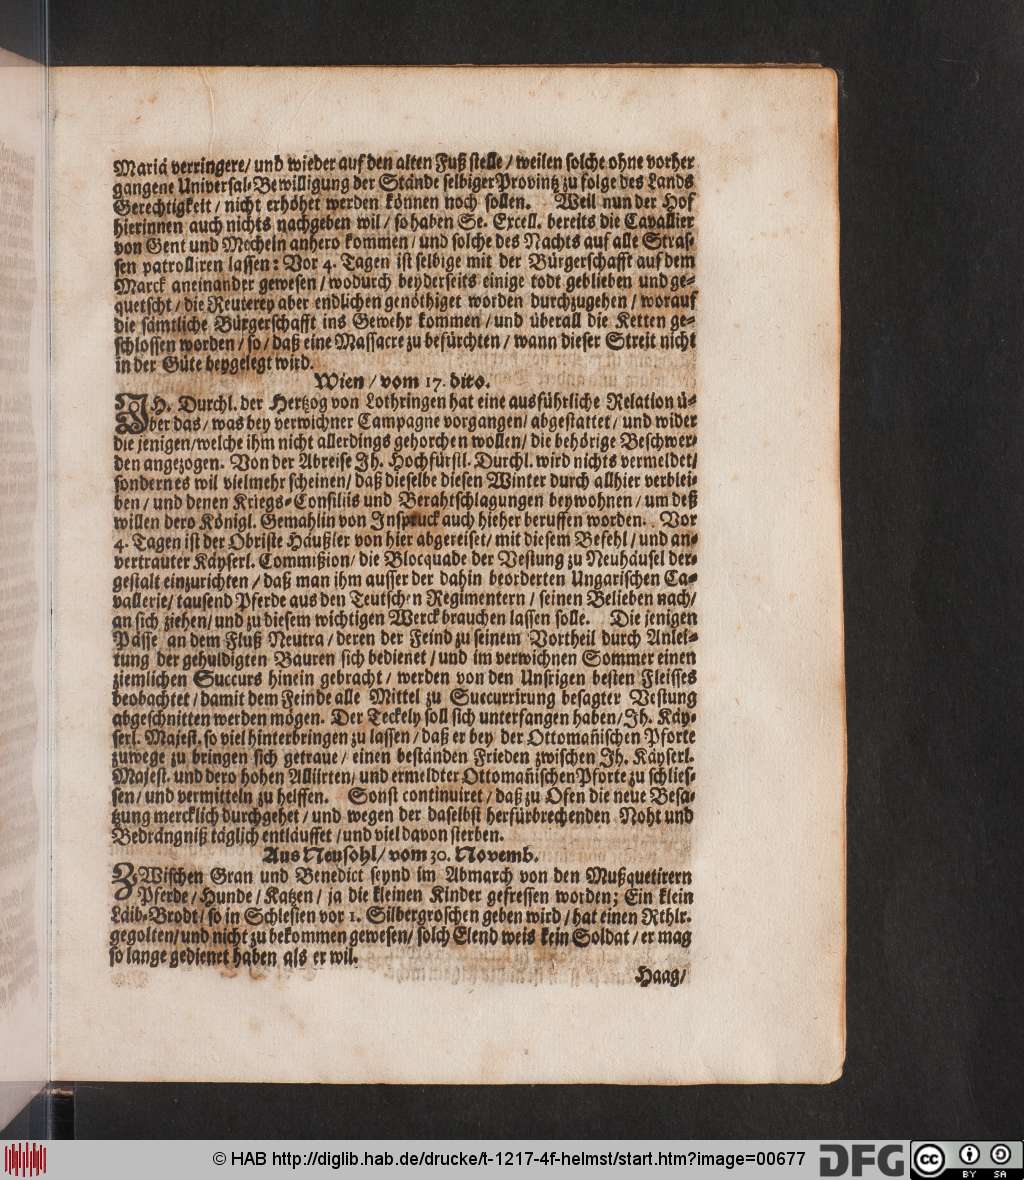 Mariá verringere/ und wieder auf den alten Fuß stelle / weilen solche ohne vorher
gangene Universal-Bewilligung der Stände selbiger Provintz zu folge des Lands
Gerechtigkeit / nicht erhöhet werden können noch sollen. Weil nun der Hof
hierinnen auch nichts nachgeben wil / so haben Se. Excell. bereits die Cavallier
von Gent und Mecheln anhero kommen / und solche des Nachts auf alle Stras-
sen patrolliren lassen: Vor 4. Tagen ist selbige mit der Bürgerschafft auf dem
Marck aneinander gewesen / wodurch beyderseits einige todt geblieben und ge-
quetscht / die Reuterey aber endlichen genöthiget worden durchzugehen / worauf
die sämtliche Bürgerschafft ins Gewehr kommen / und überall die Ketten ge-
schlossen worden / so / daß eine Massacre zu befürchten / wann dieser Streit nicht
in der Güte beygelegt wird.
Wien / vom 17. dito.
JH. Durchl. der Hertzog von Lothringen hat eine ausführliche Relation ü-
ber das / was bey verwichner Campagne vorgangen / abgestattet / und wider
die jenigen / welche ihm nicht allerdings gehorchen wollen / die behörige Beschwer-
den angezogen. Von der Abreise Jh. Hochfürstl. Durchl. wird nichts vermeldet/
sondern es wil vielmehr scheinen / daß dieselbe diesen Winter durch allhier verblei-
ben / und denen Kriegs-Consiliis und Berahtschlagungen beywohnen / um deß
willen dero Königl. Gemahlin von Inspruck auch hieher beruffen worden. Vor
4. Tagen ist der Obriste Häußler von hier abgereiset / mit diesem Befehl / und an-
vertrauter Käyserl. Commißion / die Blocquade der Vestung zu Neuhäusel der-
gestalt einzurichten / daß man ihm ausser der dahin beorderten Ungarischen Ca-
vallerie / tausend Pferde aus den Teutschen Regimentern / seinen Belieben nach/
an sich ziehen / und zu diesem wichtigen Werck brauchen lassen solle. Die jenigen
Pässe an dem Fluß Neutra / deren der Feind zu seinem Vortheil durch Anlei-
tung der gehuldigten Bauren sich bedienet / und im verwichnen Sommer einen
ziemlichen Succurs hinein gebracht / werden von den Unsrigen besten Fleisses
beobachtet / damit dem Feinde alle Mittel zu Succurrirung besagter Vestung
abgeschnitten werden mögen. Der Teckely soll sich unterfangen haben / Jh. Käy-
serl. Majest. so viel hinterbringen zu lassen / daß er bey der Ottomañischen Pforte
zuwege zu bringen sich getraue / einen beständen Frieden zwischen Jh. Käyserl.
Majest. und dero hohen Alliirten / und ermeldter Ottomañischen Pforte zu schlies-
sen / und vermitteln zu helffen. Sonst continuiret / daß zu Ofen die neue Besa-
tzung mercklich durchgehet / und wegen der daselbst herfürbrechenden Noht und
Bedrängniß täglich entläuffet / und viel davon sterben.
Aus Neusohl / vom 30. Novemb.
ZWischen Gran und Benedict seynd im Abmarch von den Mußquetirern
Pferde / Hunde / Katzen / ja die kleinen Kinder gefressen worden; Ein klein
Läib-Brodt / so in Schlesien vor 1. Silbergroschen geben wird / hat einen Rthlr.
gegolten / und nicht zu bekommen gewesen / solch Elend weis kein Soldat / er mag
so lange gedienet haben als er wil.
Haag/
© HAB http://diglib.hab.de/drucke/t-1217-4f-helmst/start.htm?image=00677
DFG
cc
BY SA